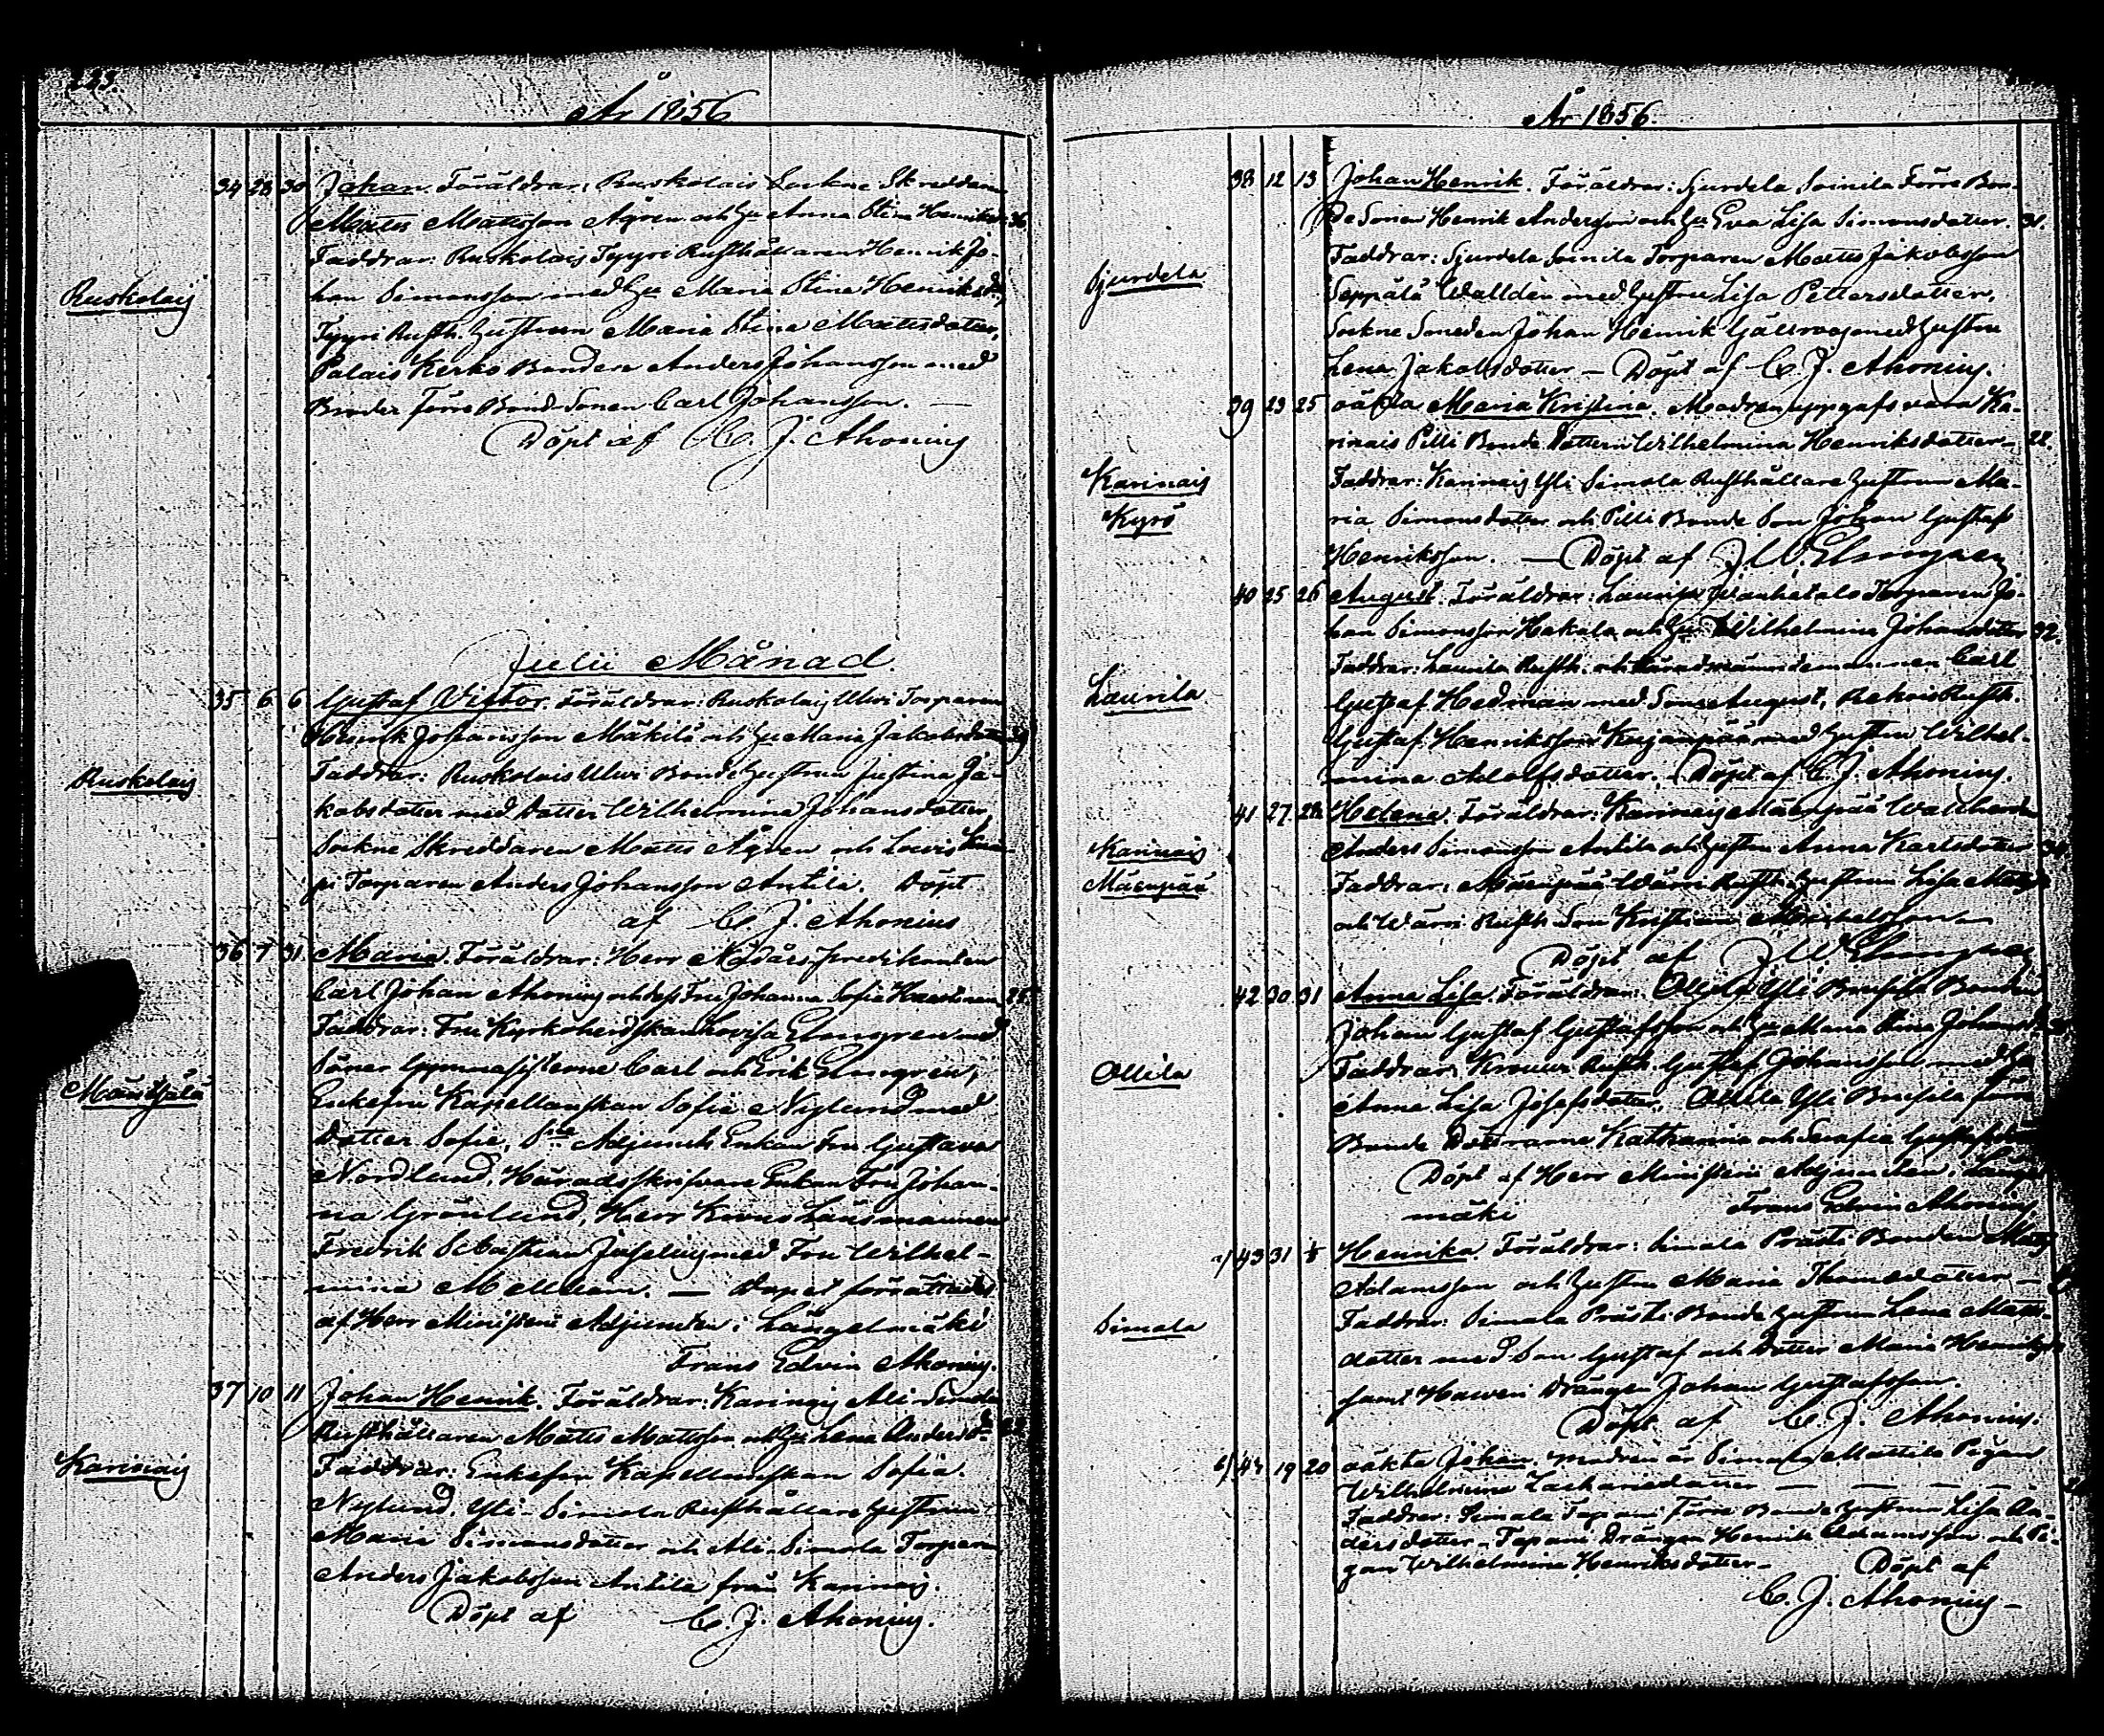 År 1856
34 28 30 Johan. Föräldrar: Ruskolais Sockne Skreddaren
Matts Mattsson Ågren och Hu Anna Stina Henriksdr 36
Faddrar: Ruskolais Tyyri Rusthållaren Henrik Jo-
han Simonsson med Hu Maria Stina Henriksdr,
Ruskolais
Tyyri Rusth. Hustrun Maria Stina Mattsdotter,
Palais Kerko Bonden Anders Johansson med
Broder förre Bond-Sonen Carl Johansson. —
Döpt af C. J. Ahonius
Julii Månad
35 6 6 Gustaf Victor. Föräldrar: Ruskolais Uhri Torparen
Henrik Johansson Mäkilä och Hu Maria Jakobsdotter
Faddrar: Ruskolais Uhri Bonde Hustrun Justina Ja-
Ruskolais
kobsdotter med Dotter Wilhelmina Johansdotter,
Sockne Skreddaren Matts Ågren och
Torparen Anders Johansson Antila. Döpt
af C. J. Ahonius
36 7 31 Maria. Föräldrar: Herr Nådårspredikanten
Carl Johan Ahonius och dess Fru Johanna Sofia
Faddrar: Fru Kyrkoherdskan Lovisa Elmgren med
Söner Gymnasisterne Carl och Erik Elmgren,
Mäntsälä
Enkefru Kapellanskan Sofia Nylund med
Dotter Sofie, Adjunkts Enkan Fru Gustava
Nordlund, Häradsskrifvare Enkan Fru Johan-
na Grönlund, Herr Krono Länsmannen
Fredrik Sebastian Juselius med Fru Wilhel-
mina Mellberg. — Dopet förrättades
af Herr Ministerii Adjuncten i Längelmäki
Frans Edvin Ahonius.
37 10 11 Johan Henrik. Föräldrar: Karinais Ali Simola
Rusthållaren Matts Mattsson och Hu Lena Andersdr
Karinais
Faddrar: Enkefru Kapellanskan Sofia
Nylund. Yli-Simola Rusthållare Hustrun
Maria Simonsdotter och Ali-Simola Torparen
Anders Jakobsson Antila från Karinais.
Döpt af C. J. Ahonius.
År 1856.
38 12 13 Johan Henrik. Föräldrar: Sjurdela Soinila Förre Bon-
de Sonen Henrik Andersson och Hu Eva Lisa Simonsdotter. 31.
Faddrar: Sjurdela Soinila Torparen Matts Jakobsson
Sjurdela
Seppälä Walldén med Hustru Lisa Pettersdotter,
Sockne Smeden Johan Henrik med Hustru
Lena Jakobsdotter — Döpt af C. J. Ahonius.
39 23 25 oäkta Maria Kristina. Modren uppgafs vara Ka-
rinais Pilli Bonde Dottern Wilhelmina Henriksdotter — 22.
Karinais
Faddrar: Karinais Yli Simola Rusthållare Hustrun Ma-
Kyrö
ria Simonsdotter och Pilli Bonde Son Johan Gustaf
Henriksson. — Döpt af J. W. Elmgren
40 25 26 August. Föräldrar: Laurila Wanhatalo Torparen Jo-
han Simonsson Hakala och Hu Wilhelmina Johansdotter 32.
Faddrar: Laurila Rusth. och Häradsnämndemannen Carl
Laurila
Gustaf Hedman med Son August, Rusth.
Gustaf Henriksson med Hustru Wilhel-
mina Adolfsdotter. Döpt af C. J. Ahonius.
41 27 28 Helena. Föräldrar: Karinais Mäenpää
Karinais
Anders Simonsson Antila och Hustru Anna Karlsdotter
Mäenpää
Faddrar: Mäenpää Wäari Rusth. Hustrun Lisa
och Wäari Rusth. Son Kristian Michelsson —
Döpt af J W Elmgren
42 30 31 Anna Lisa. Föräldrar: Ollila Yli Bonden
Johan Gustaf Gustafsson och Hu Maria Stina
Ollila
Faddrar: Rusth. Gustaf Johansson med Hu
Anna Lisa Josefsdotter, Ollila Yli
Bonde Döttrarne Katharina och Serafia
Döpt af Herr Ministerii Adjuncten i Längel-
mäki Frans Edvin Ahonius
43 31 Henrika. Föräldrar: Simala Prästi Bonden Matts
Adamsson och Hustru Maria Thomasdotter —
Simala
Faddrar: Simala Prästi Bonde Hustrun Lena Matts-
dotter med Son Gustaf och Dotter Maria
samt Drängen Johan Gustafsson.
Döpt af C. J. Ahonius.
44 19 20 oäkta Johan. modren är Simala Mattila Pigan
Wilhelmina Zachariedotter — — — —
Faddrar: Simala Tapani Förre Bonde Hustrun Lisa An-
dersdotter — Tapani Drängen Henrik Adamsson och Pi-
gan Wilhelmina Henriksdotter — Döpt af
C. J. Ahonius —